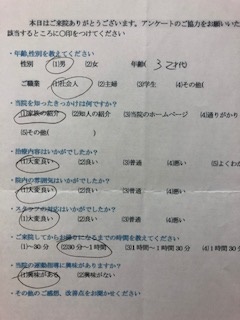 本日はご来院ありがとうございます。アンケートのご協力をお願いいた
該当するところに〇印をつけてください
・年齢,性別を教えてください
性別 (1)男 (2)女 年齢(
ご職業 (1)社会人 (2)主婦 (3)学生 (4)その他(
・当院を知ったきっかけは何ですか?
(1)家族の紹介 (2)知人の紹介 (3)当院のホームページ (4)通りがかり
(5)その他( )
・治療内容はいかがでしたか?
(1)大変良い (2)良い (3)普通 (4)悪い (5)よくわか
・院内の雰囲気はいかがでしたか?
(1)大変良い (2)良い (3)普通 (4)悪い
・スタッフの対応はいかがでしたか?
(1)大変良い (2)良い (3)普通 (4)悪い
・ご来院してからお帰りになるまでの時間を教えてください
(1)~30分 (2)30分~1時間 (3)1時間~1時間30分 (4)1時間3
・当院の運動指導に興味がありますか?
(1)興味がある (2)興味がない
・その他のご感想、改善点をお聞かせください